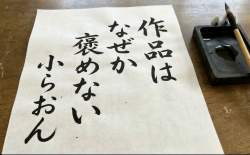 作品は
なぜか
褒めない
小らおん